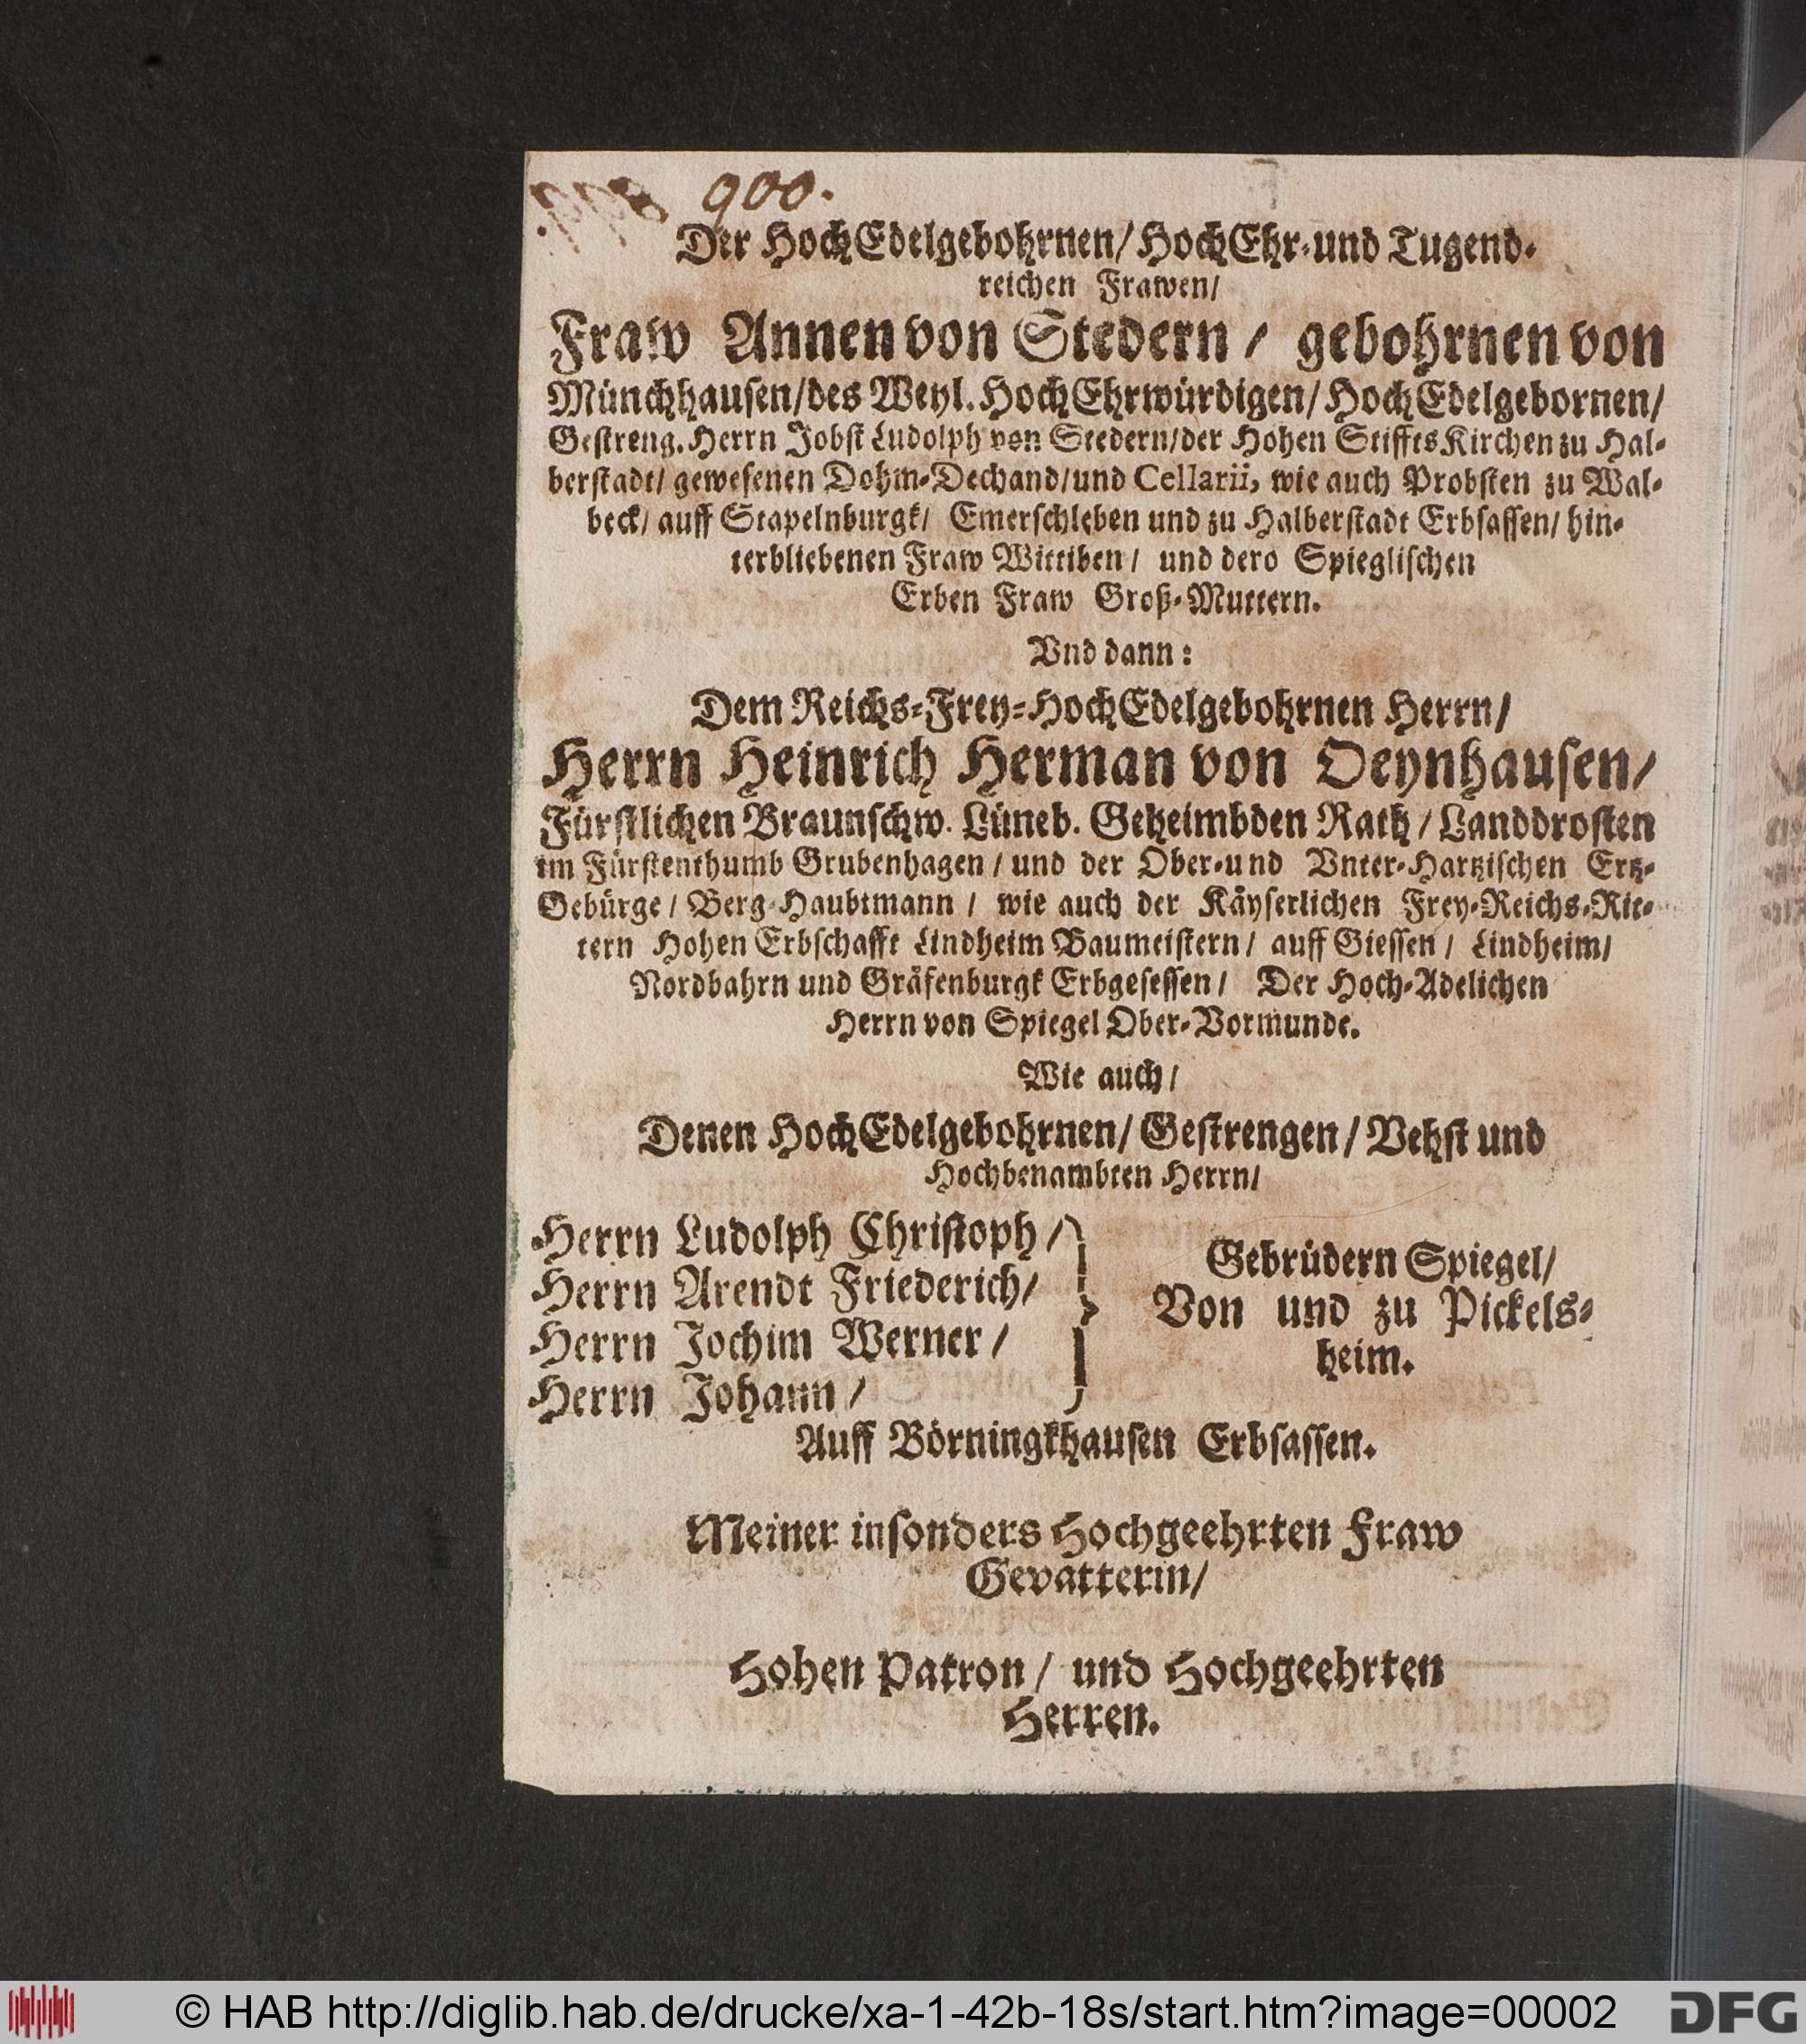 900.
Der HochEdelgebohrnen/ HochEhr-und Tugend-
reichen Frawen/
Fraw Annen von Stedern / gebohrnen von
Münchhausen/des Weyl. HochEhrwürdigen/ HochEdelgebornen/
Gestreng. Herrn Jobst Ludolph von Stedern/der Hohen StifftsKirchen zu Hal-
berstadt/ gewesenen Dohm-Dechand/und Cellarii, wie auch Probsten zu Wal-
beck/ auff Stapelnburgk/ Emerschleben und zu Halberstadt Erbsassen/ hin-
terbliebenen Fraw Wittiben/ und dero Spieglischen
Erben Fraw Groß-Muttern.
Vnd dann:
Dem Reichs-Frey-HochEdelgebohrnen Herrn/
Herrn Heinrich Herman von Oeynhausen/
Fürstlichen Braunschw. Lüneb. Geheimbden Rath / Landdrosten
im Fürstenthumb Grubenhagen / und der Ober-und Vnter-Hartzischen Ertz-
Gebürge / Berg-Haubtmann / wie auch der Käyserlichen Frey-Reichs-Rit-
tern Hohen Erbschafft Lindheim Baumeistern/ auff Giessen / Lindheim/
Nordbahrn und Gräfenburgk Erbgesessen / Der Hoch-Adelichen
Herrn von Spiegel Ober-Vormunde.
Wie auch/
Denen HochEdelgebohrnen/ Gestrengen / Vehst und
Hochbenambten Herrn/
Herrn Ludolph Christoph /
Herrn Arendt Friederich/
Herrn Jochim Werner /
Herrn Johann /
Gebrüdern Spiegel/
Von und zu Pickels-
heim.
Auff Börningkhausen Erbsassen.
Meiner insonders Hochgeehrten Fraw
Gevatterin/
Hohen Patron / und Hochgeehrten
Herren.
© HAB http://diglib.hab.de/drucke/xa-1-42b-18s/start.htm?image=00002
DFG